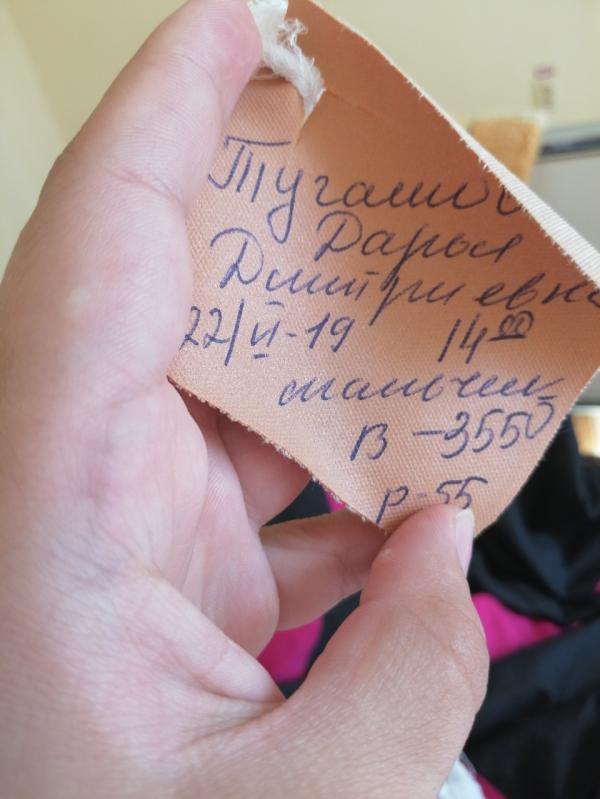 Тугашов
Дарья
Дмитриевна
22/VI-19 14⁰⁰
мальчик
В -3550
р-55